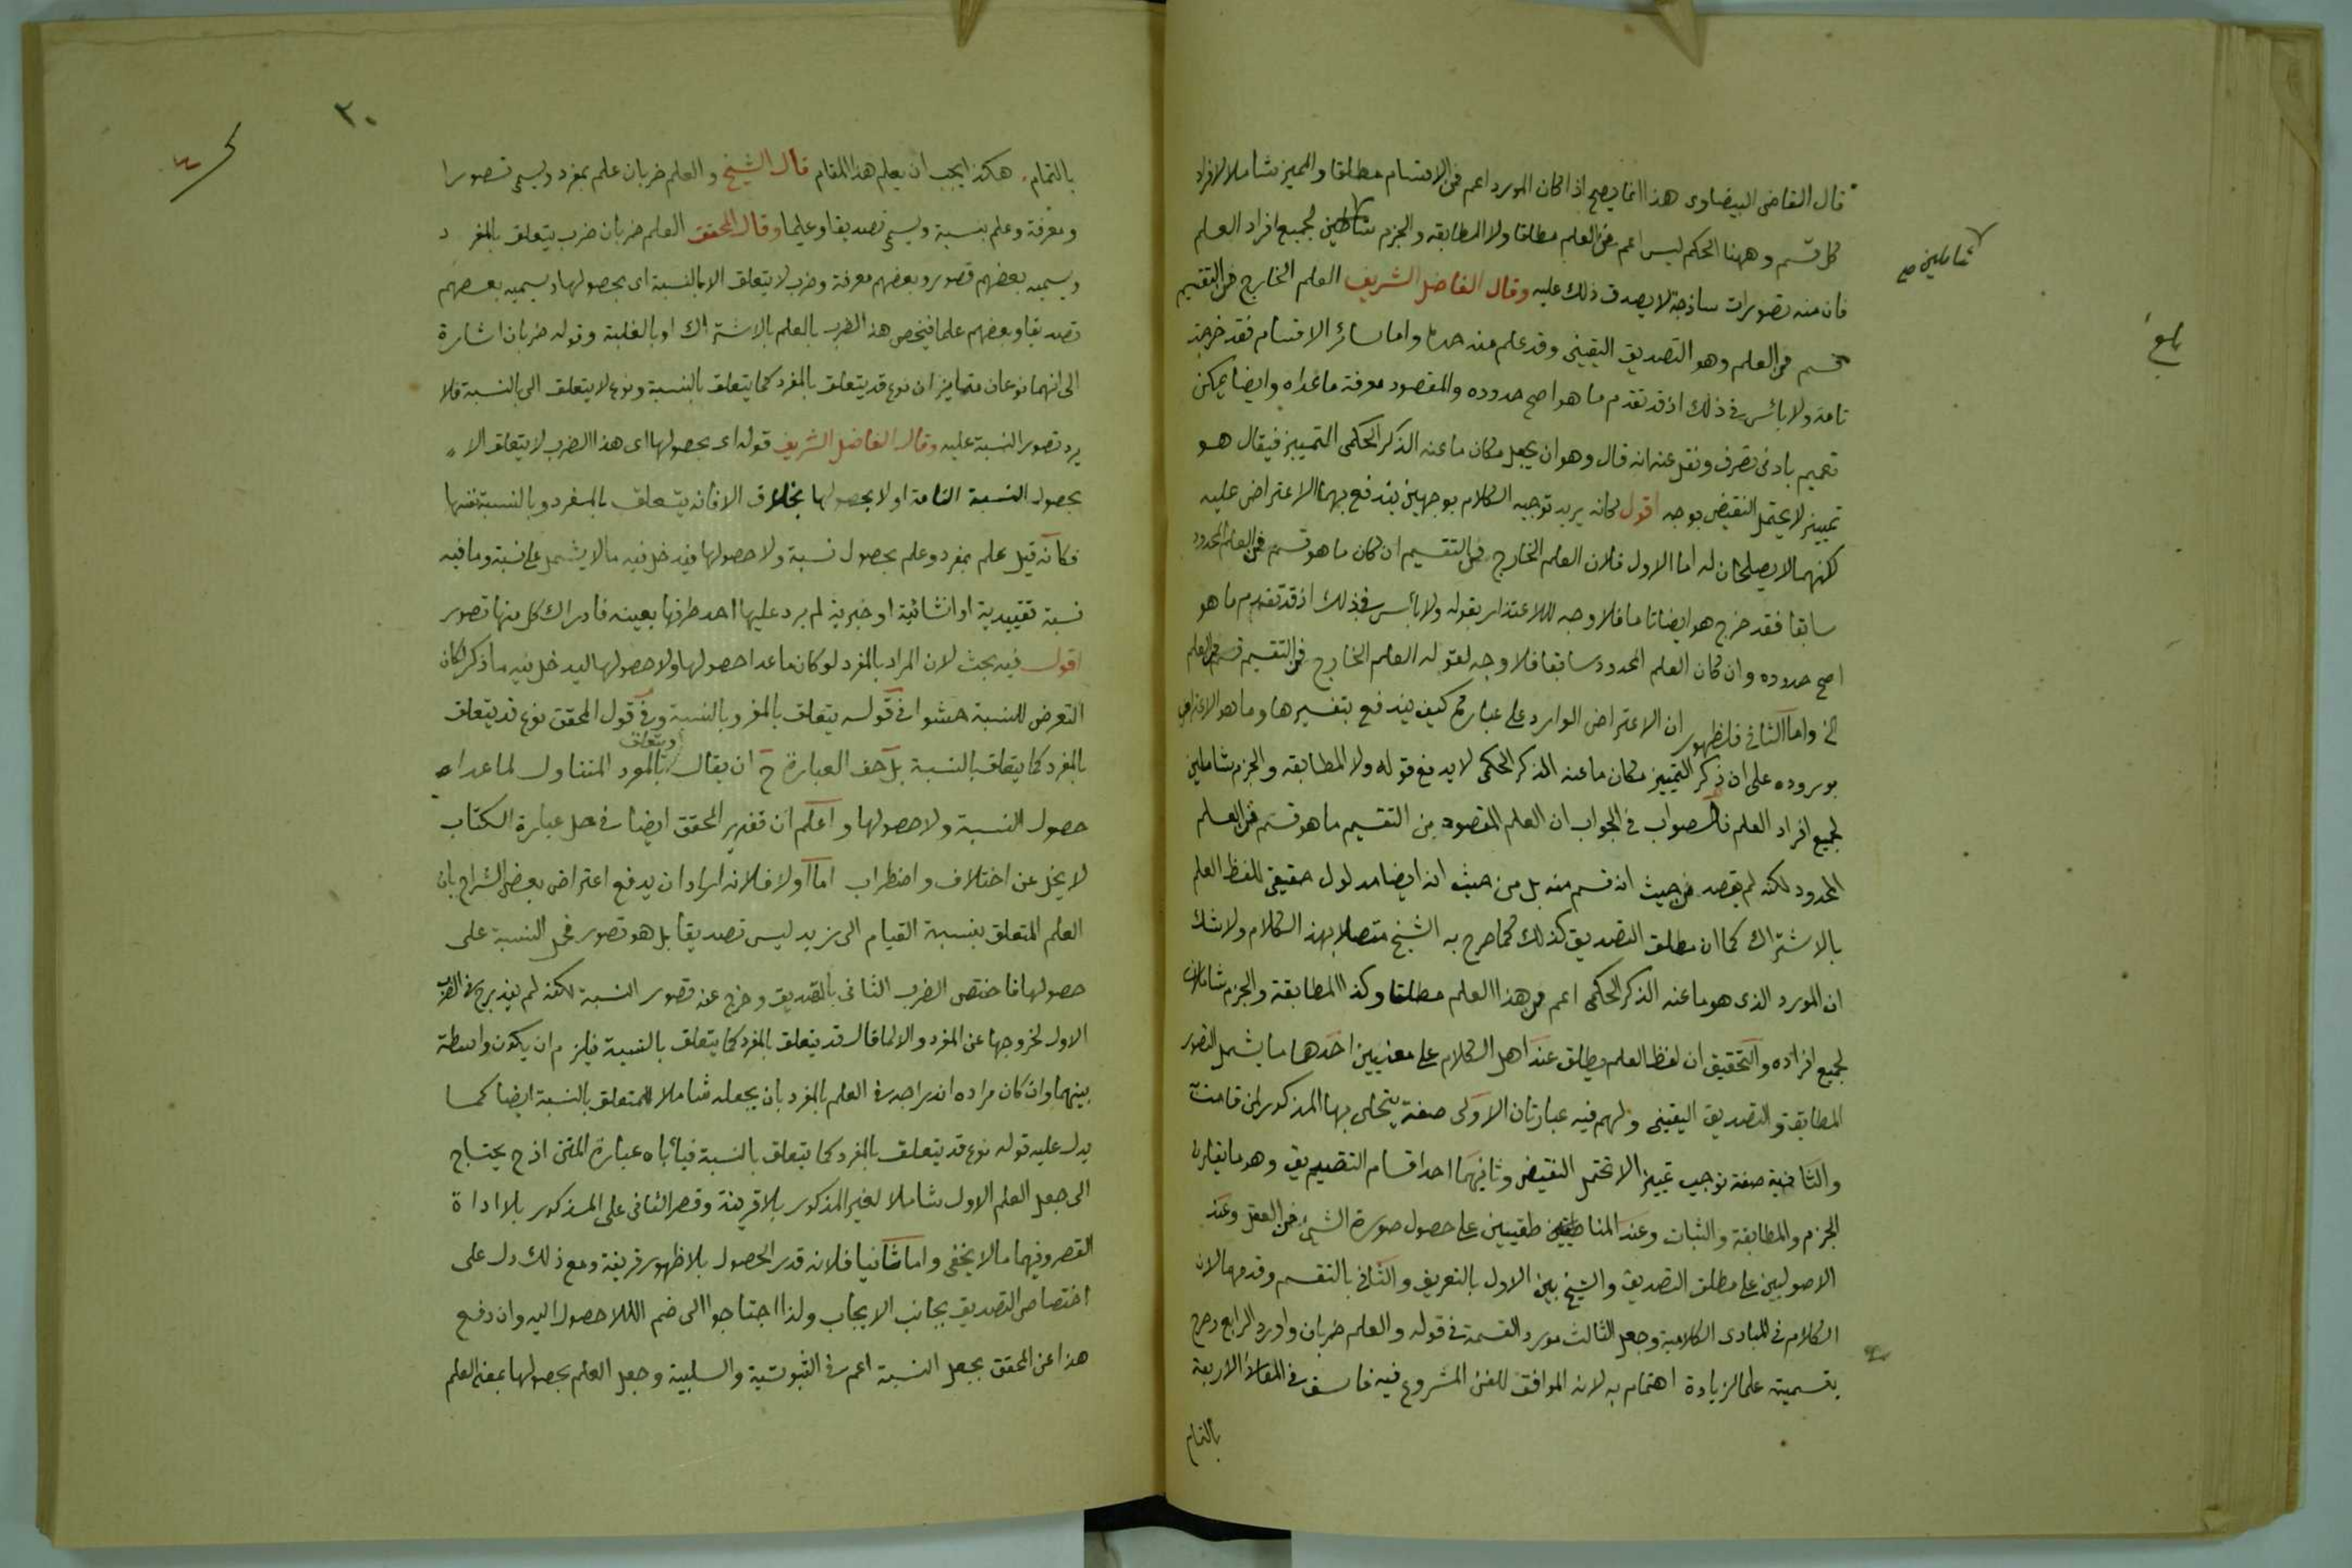 قال القاضى البيضاوى هذا انما يصح اذا كان المورد اعم من الاقسام مطلقا والمميز شاملا لافراد
كل قسم وههنا الحكم ليس اعم من العلم مطلقا ولا المطابقة والجزم شاملين لجميع افراد العلم
شاملين صح
فان منه تصورات ساذجة لا يصدق ذلك عليه وقال الفاضل الشريف العلم الخارج من التقسيم
قسم من العلم وهو التصديق اليقينى وقد علم منه حده واما سائر الاقسام فقد خرجت
بلغ
تامة ولا بأس فى ذلك اذ قد تقدم ما هو اصح حدوده والمقصود معرفة ما عداه وايضا يمكن
تعميم بادنى تصرف ونقل عنه انه قال وهو ان يجعل مكان ما عنه الذكر الحكمى التمييز فيقال هو
تمييز لا يحتمل النقيض بوجه اقول كانه يريد توجيه الكلام بوجهين يندفع بهما الاعتراض عليه
لكنهما لا يصلحان له اما الاول فلان العلم الخارج من التقسيم ان كان ما هو قسم من العلم المحدود
سابقا فقد خرج هو ايضا تاما فلا وجه للاعتذار بقوله ولا بأس فى ذلك اذ قد تقدم ما هو
اصح حدوده وان كان العلم المحدود سابقا فلا وجه لقوله العلم الخارج من التقسيم قسم من العلم
الخ واما الثانى فلظهور ان الاعتراض الوارد على عبارة كيف يندفع بتغييرها وما هو الاعتراض
بوروده على ان ذكر التمييز مكان ما عنه الذكر الحكمى لا يدفع قوله ولا المطابقة والجزم شاملين
لجميع افراد العلم فالصواب فى الجواب ان العلم المقصود من التقسيم ما هو قسم من العلم
المحدود لكنه لم يقصد من حيث انه قسم منه بل من حيث انه ايضا مدلول حقيقى للفظ العلم
بالاشتراك كما ان مطلق التصديق كذلك كما صرح به الشيخ متصلا بهذا الكلام ولا شك
ان المورد الذى هو ما عنه الذكر الحكمى اعم من هذا العلم مطلقا وكذا المطابقة والجزم شاملان
لجميع افراده والتحقيق ان لفظ العلم يطلق عند اهل الكلام على معنيين احدها ما يشمل التصور
المطابقة والتصديق اليقينى ولهم فيه عبارتان الاولى صفة يتجلى بها المذكور لمن قامت
والثانية صفة توجب تمييزا لا تحتمل النقيض وثانيهما احد اقسام التصديق وهو ما يقارن
الجزم والمطابقة والثبات وعند المناطقيين على حصول صورة الشئ فى العقل وعند
الاصوليين على مطلق التصديق والشيخ بين الاول بالتعريف والثانى بالتقسيم وقدمهما لان
الكلام فى المبادى الكلامية وجعل الثالث مورد القسمة فى قوله والعلم ضربان واورد الرابع وصرح
بتسميته علما لزيادة اهتمام به لانه الموافق للفن المشروع فيه فاستوفى المقاصد الاربعة
بالتمام
٣٠
بالتمام هكذا يجب ان يعلم هذا المقام قال الشيخ والعلم ضربان علم بمفرد ويسمى تصورا
ومعرفة وعلم بنسبة ويسمى تصديقا وعلما وقال المحقق العلم ضربان ضرب يتعلق بالمفرد
ويسميه بعضهم تصور وبعضهم معرفة وضرب لا يتعلق الا بالنسبة اى بحصولها ويسميه بعضهم
تصديقا وبعضهم علما فيخص هذا الضرب بالعلم بالاشتراك او بالغلبة وقوله ضربان اشارة
الى انهما نوعان متمايزان نوع قد يتعلق بالمفرد كما يتعلق بالنسبة ونوع لا يتعلق الى بالنسبة فلا
يرد تصور النسبة عليه وقال الفاضل الشريف قوله اى بحصولها اى هذا الضرب لا يتعلق الا
بحصول النسبة التامة او لا بحصولها بخلاف الاول فانه يتعلق بالمفرد وبالنسبة نفسها
فكانه قيل علم بمفرد وعلم بحصول نسبة ولا حصولها فيدخل فيه ما لا يشتمل على نسبة وما فيه
نسبة تقييدية او انشائية او خبرية لم يرد عليها احد طرفيها بعينه فادراك كل منها تصور
اقول فيه بحث لان المراد بالمفرد لو كان ما عدا حصولها ولا حصولها ليدخل فيه ما ذكر لكان
التعرض للنسبة حشوا فى قوله يتعلق بالمفرد وبالنسبة وفى قول المحقق نوع قد يتعلق
بالمفرد كما يتعلق بالنسبة بل حق العبارة ح ان يقال ويتعلق بالمفرد المتناول لما عداه
حصول النسبة ولا حصولها واعلم ان تقرير المحقق ايضا فى حل عبارة الكتاب
لا يخل عن اختلاف واضطراب اما اولا فلانه اراد ان يدفع اعتراض بعض الشراح بان
العلم المتعلق بنسبة القيام الى زيد ليس تصديقا بل هو تصور فحمل النسبة على
حصولها فاختص الضرب الثانى بالتصديق وخرج عنه تصور النسبة لكنه لم يندرج فى الضرب
الاول لخروجها عن المفرد والا لما قال قد يتعلق بالمفرد كما يتعلق بالنسبة فيلزم ان يكون واسطة
بينهما وان كان مراده اندراجه فى العلم بالمفرد بان يجعله شاملا للمتعلق بالنسبة ايضا كما
يدل عليه قوله نوع قد يتعلق بالمفرد كما يتعلق بالنسبة فيأباه عبارة المتن اذ ح يحتاج
الى جعل العلم الاول شاملا لغير المذكور بلا قرينة وقصر الثانى على المذكور بلا اداة
القصر وفيهما ما لا يخفى واما ثانيا فلانه قدر الحصول بلا ظهور قرينة ومع ذلك دل على
اختصاص التصديق بجانب الايجاب ولذا احتاجوا الى ضم اللاحصول اليه وان دفع
هذا عن المحقق بجعل النسبة اعم فى الثبوتية والسلبية وجعل العلم بحصولها بمعنى العلم